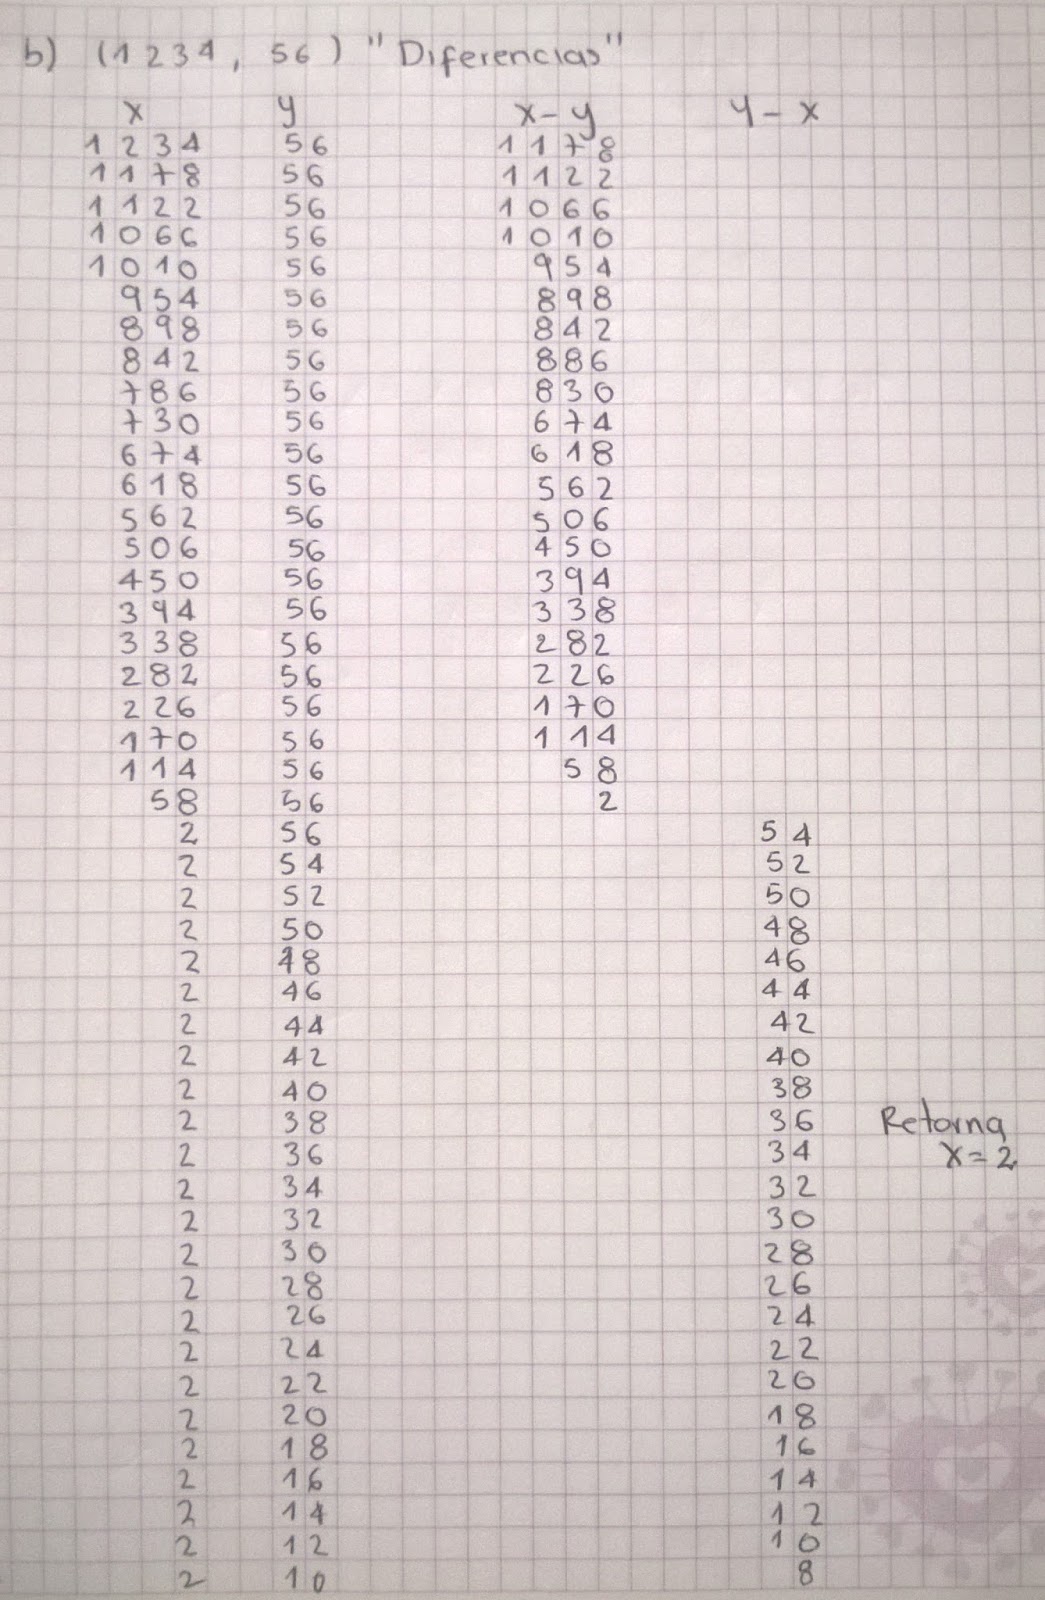 b) (1234, 56) "Diferencias"
x y x-y y-x
1234 56 1178
1178 56 1122
1122 56 1066
1066 56 1010
1010 56 954
954 56 898
898 56 842
842 56 886
786 56 830
730 56 674
674 56 618
618 56 562
562 56 506
506 56 450
450 56 394
394 56 338
338 56 282
282 56 226
226 56 170
170 56 114
114 56 58
58 56 2
2 56 54
2 54 52
2 52 50
2 50 48
2 48 46
2 46 44
2 44 42
2 42 40
2 40 38
2 38 36 Retorna
2 36 34 x=2
2 34 32
2 32 30
2 30 28
2 28 26
2 26 24
2 24 22
2 22 20
2 20 18
2 18 16
2 16 14
2 14 12
2 12 10
2 10 8